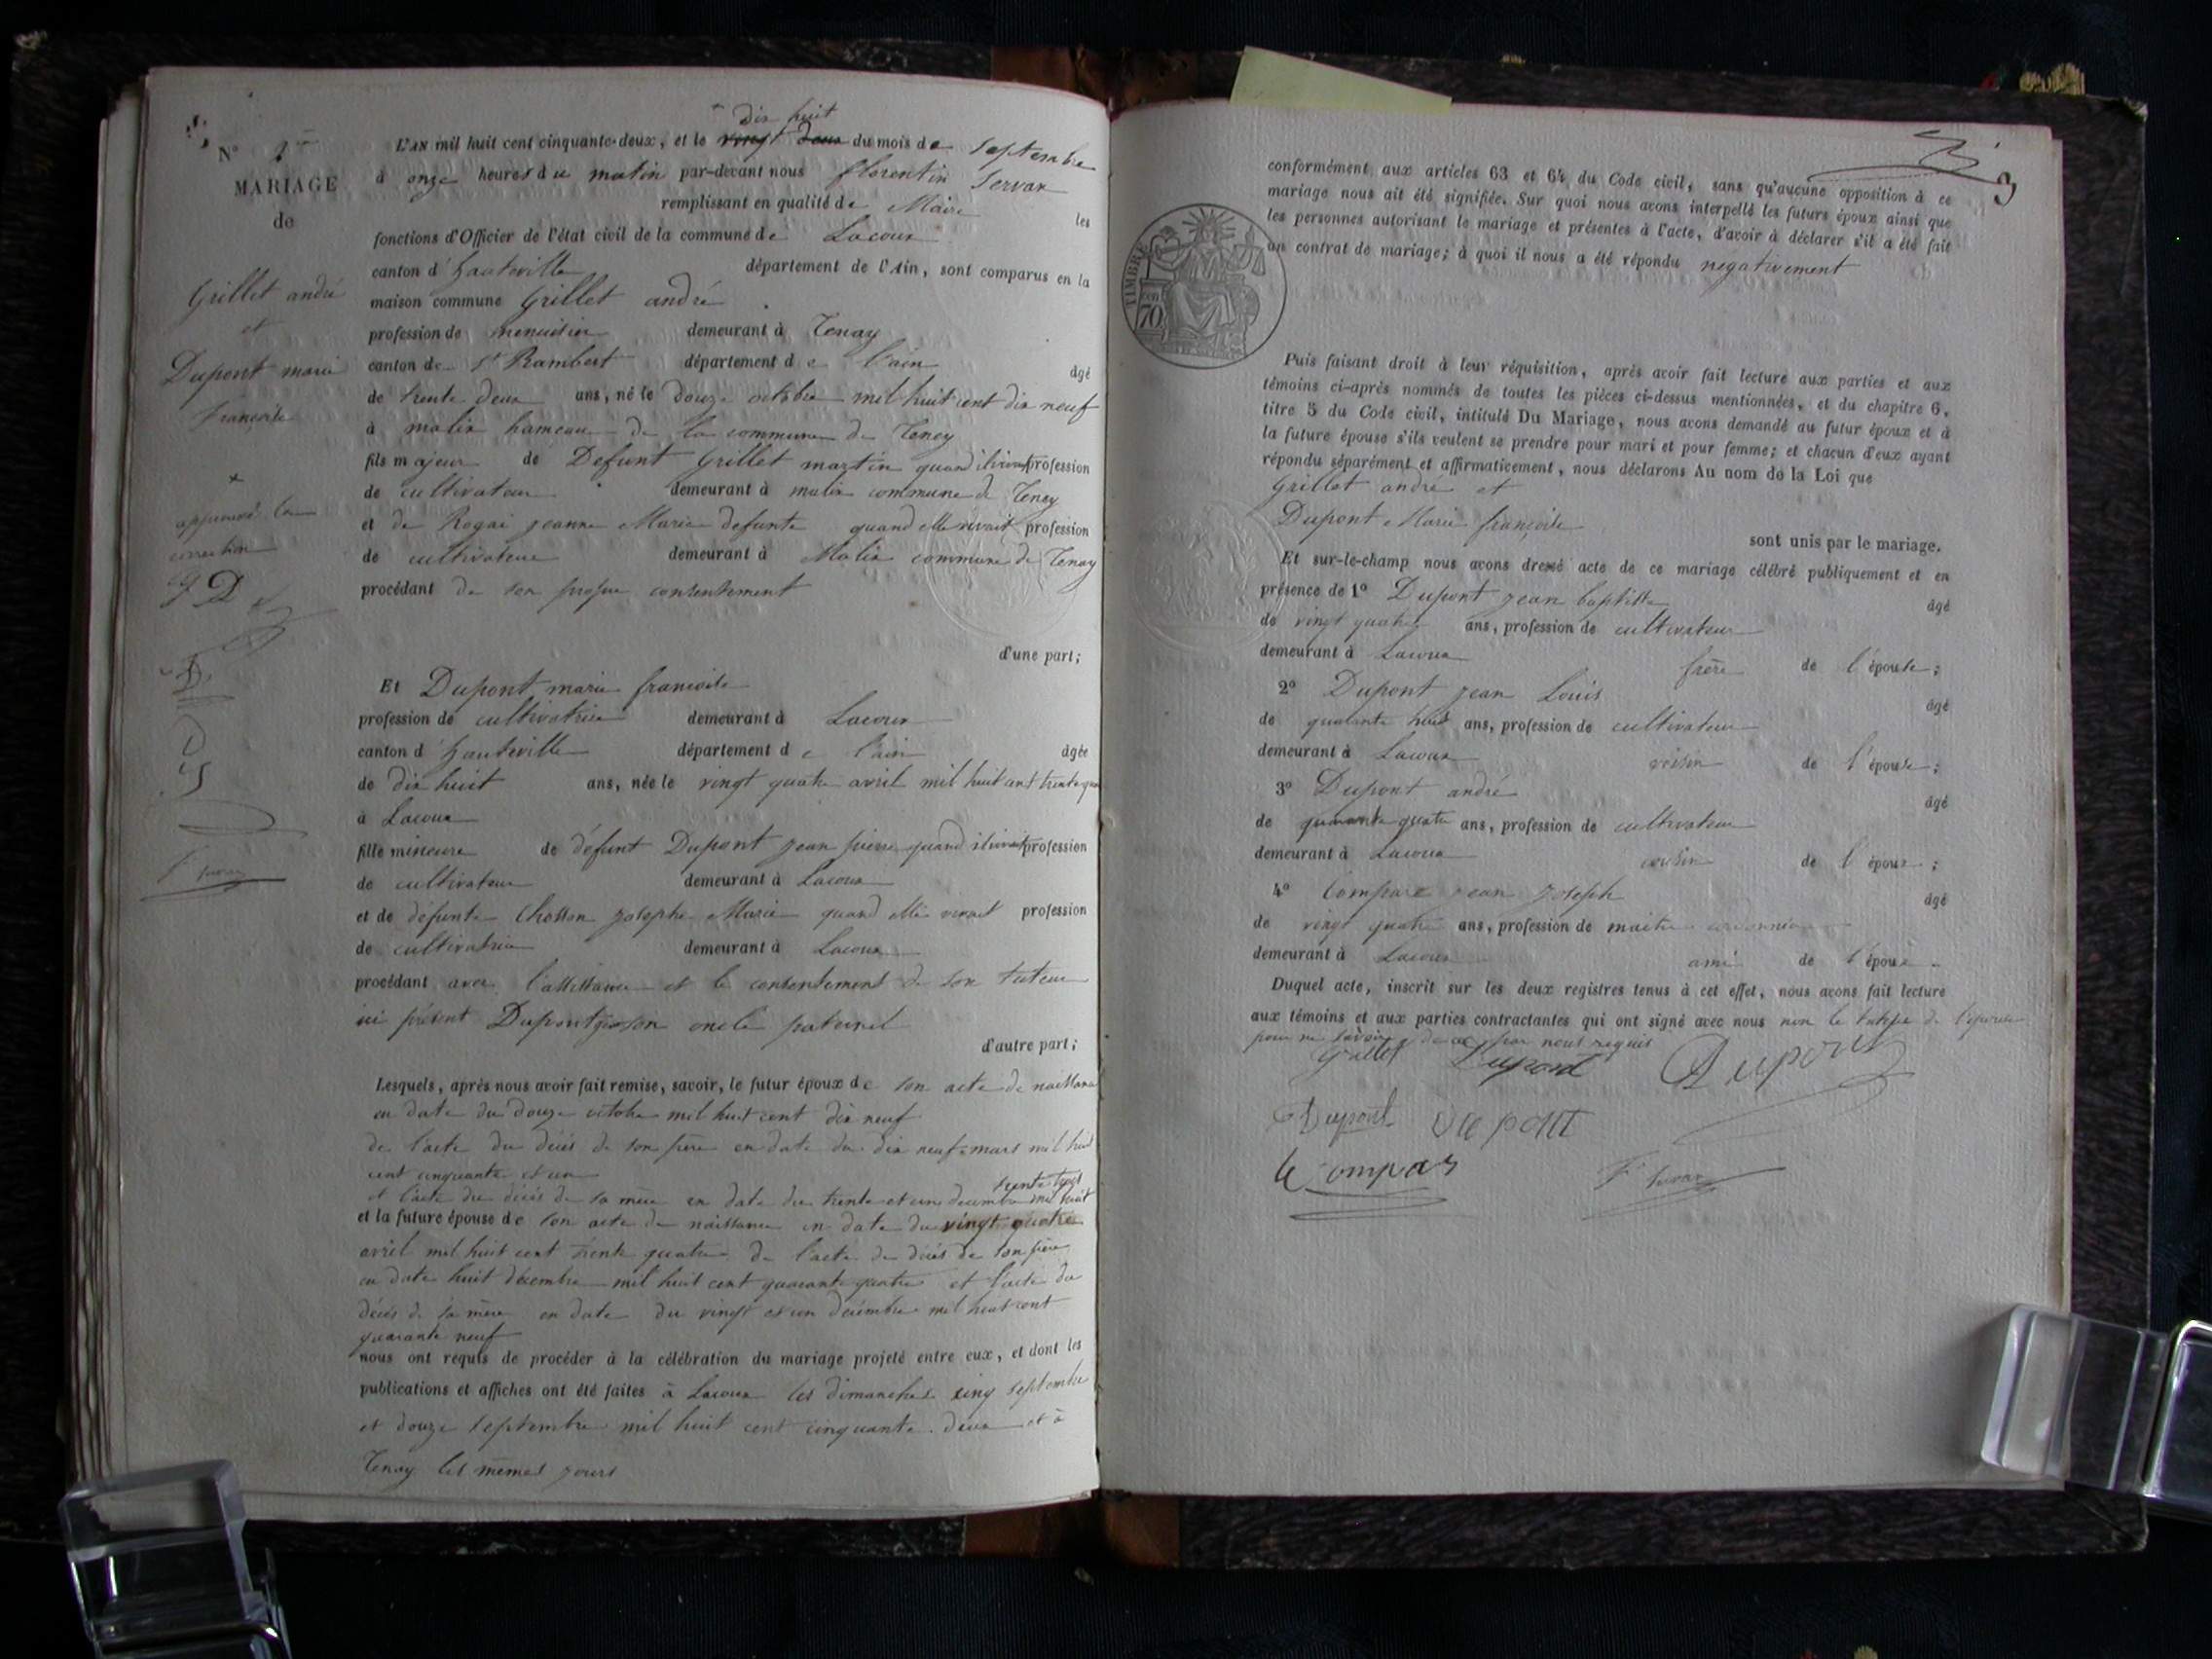 N° 1
MARIAGE
de
Grillet andré
et
Dupont marie
françoise
+
approuvé la
correction
G D
D
D
F Servan
+ dix huit
L'AN mil huit cent cinquante-deux, et le vingt deux du mois de septembre
à onze heures du matin par-devant nous florentin Servan
remplissant en qualité de Maire les
fonctions d'Officier de l'état civil de la commune de Lacoux
canton d'hauteville département de l'Ain, sont comparus en la
maison commune Grillet andré
profession de menuisier demeurant à Tenay
canton de St Rambert département de l'ain âgé
de trente deux ans, né le douze octobre mil huit cent dix neuf
à malix hameau de la commune de Teney
fils majeur de Defunt Grillet martin quand il vivait profession
de cultivateur demeurant à malix commune de Teney
et de Rogai jeanne Marie defunte quand elle vivait profession
de cultivateur demeurant à Malix commune de Tenay
procédant de son propre consentement
d'une part;
Et Dupont marie francoise
profession de cultivatrice demeurant à Lacoux
canton d'hauteville département de l'ain âgée
de dix huit ans, née le vingt quatre avril mil huit cent trente qua
à Lacoux
fille mineure de défunt Dupont jean pierre quand il vivait profession
de cultivateur demeurant à Lacoux
et de défunte Chosson josephe Marie quand elle vivait profession
de cultivatrice demeurant à Lacoux
procédant avec l'assistance et le consentement de son tuteur
ici présent Dupont son oncle paternel
d'autre part;
Lesquels, après nous avoir fait remise, savoir, le futur époux de son acte de naissance
en date du douze octobre mil huit cent dix neuf
de l'acte du décès de son père en date du dix neuf mars mil huit
cent cinquante et un
et l'acte du décès de sa mère en date du trente et un decembre mil huit trente
et la future épouse de son acte de naissance en date du vingt quatre
avril mil huit cent trente quatre de l'acte de décès de son père
en date huit décembre mil huit cent quarante quatre et l'acte du
décès de sa mère en date du vingt et un décembre mil huit cent
quarante neuf
nous ont requis de procéder à la célébration du mariage projeté entre eux, et dont les
publications et affiches ont été faites à Lacoux les dimanches cinq septembre
et douze septembre mil huit cent cinquante deux et à
Tenay les mêmes jours
3
conformément aux articles 63 et 64 du Code civil, sans qu'aucune opposition à ce
mariage nous ait été signifiée. Sur quoi nous avons interpellé les futurs époux ainsi que
les personnes autorisant le mariage et présentes à l'acte, d'avoir à déclarer s'il a été fait
un contrat de mariage; à quoi il nous a été répondu negativement
TIMBRE
70
Puis faisant droit à leur réquisition, après avoir fait lecture aux parties et aux
témoins ci-après nommés de toutes les pièces ci-dessus mentionnées, et du chapitre 6,
titre 5 du Code civil, intitulé Du Mariage, nous avons demandé au futur époux et à
la future épouse s'ils veulent se prendre pour mari et pour femme; et chacun d'eux ayant
répondu séparément et affirmativement, nous déclarons Au nom de la Loi que
Grillet andré et
Dupont Marie françoise
sont unis par le mariage.
Et sur-le-champ nous avons dressé acte de ce mariage célébré publiquement et en
présence de 1° Dupont jean baptiste âgé
de vingt quatre ans, profession de cultivateur
demeurant à Lacoux frère de l'épouse;
2° Dupont jean Louis âgé
de quarante huit ans, profession de cultivateur
demeurant à Lacoux voisin de l'épouse;
3° Dupont andré âgé
de quarante quatre ans, profession de cultivateur
demeurant à Lacoux cousin de l'épouse;
4° Comparz jean joseph âgé
de vingt quatre ans, profession de maitre cordonnier
demeurant à Lacoux ami de l'épouse.
Duquel acte, inscrit sur les deux registres tenus à cet effet, nous avons fait lecture
aux témoins et aux parties contractantes qui ont signé avec nous non le tuteur de l'épouse
pour ne savoir de ce par nous requis
Grillet Dupont Dupont
Dupont Dupont
Compar F Servan